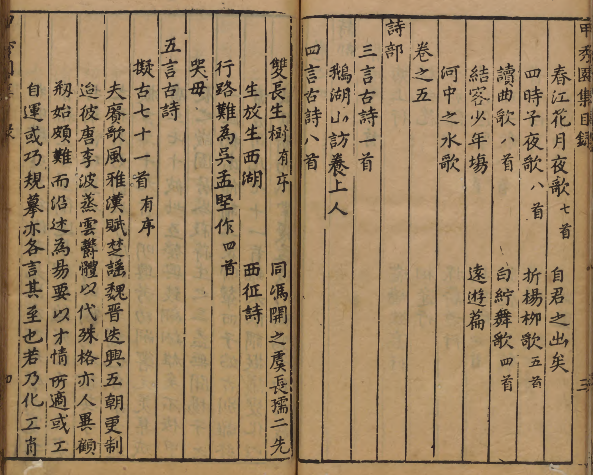 甲秀園集目録
春江花月夜歌七首 自君之出矣
四時子夜歌八首 折楊柳歌五首
讀曲歌八首 白紵舞歌四首
結客少年場 遠遊篇
河中之水歌
卷之五
詩部
三言古詩一首
鵝湖山訪養上人
四言古詩八首
三
雙長生樹有序 同馮開之虞長孺二先
生放生西湖 西征詩
行路難為吳孟堅作四首
哭母
五言古詩
擬古七十一首有序
夫賡歌風雅漢賦楚謡魏晋迭興五朝更制
迨彼唐李波蒸雲欝體以代殊格亦人異顧
剏始頗難而沿述為易要以才情所適或工
自運或巧規摹亦各言其至也若乃化工肖
四